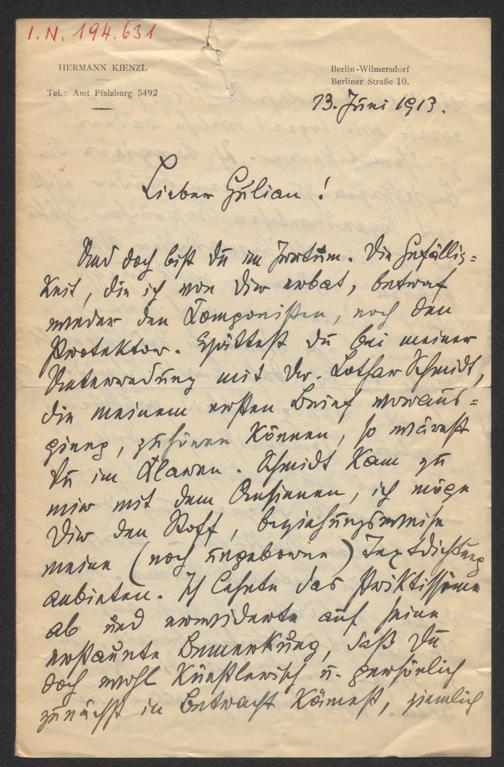 I.N. 194.631
HERMANN KIENZL
Tel.: Amt Pfalzburg 5492
Berlin-Wilmersdorf
Berliner Straße 10.
13. Juni 1913.
Lieber Julian!
Und doch bist Du im Irrtum. Die Gefällig=
keit, die ich von Dir erbat, betraf
weder den Componisten, noch den
Protektor. Hättest Du bei meiner
Unterredung mit Dr. Lothar Schmidt,
die meinem ersten Brief voraus=
gieng, zuhören können, so wärest
Du im Klaren. Schmidt kam zu
mir mit dem Ansinnen, ich möge
Dir den Stoff, beziehungsweise
meine (noch ungeborene) Textdichtung
anbieten. Ich lehnte das
ab und erwiderte auf seine
erstaunte Bemerkung, daß Du
doch wohl künstlerisch u. persönlich
zunächst in Betracht kämest, ziemlich